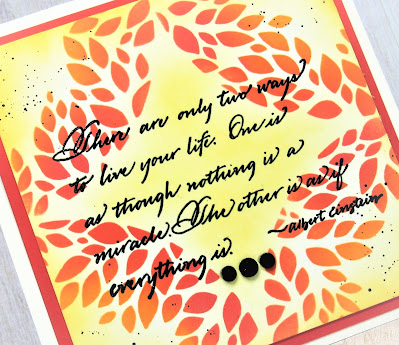 There are only two ways
to live your life. One is
as though nothing is a
miracle. The other is as if
everything is.
~albert einstein